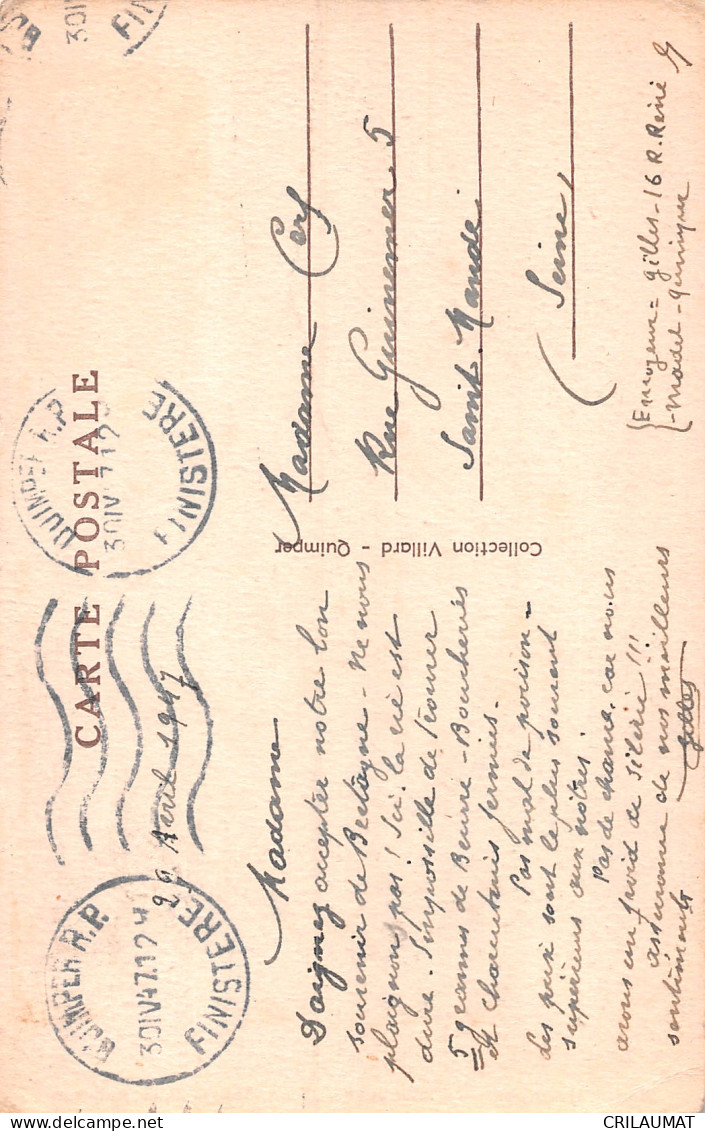 CARTE POSTALE
QUIMPER R.P.
30IV47.12
FINISTERE
QUIMPER R.P.
FINISTERE
30IV
FIN
29 Avril 1947
Madame
Daignez accepter notre bon
souvenir de Bretagne - Ne nous
plaignons pas! Ici la vie est
dure. Impossible de trouver
5 grams de Beurre - Boucheries
et charcuteries fermées -
Pas mal de poisson -
des prix sont le plus souvent
supérieurs aux nôtres.
Pas de chance, car nous
avons un froid de Sibérie!!!
assurance de nos meilleurs
sentiments
Gilles
Collection Villard - Quimper
Madame Cerf
Rue Guinemer 5
Saint Mandé
(Seine)
Envoyeur = Gilles - 16 R. René
- Madec - Quimper
CRILAUMAT